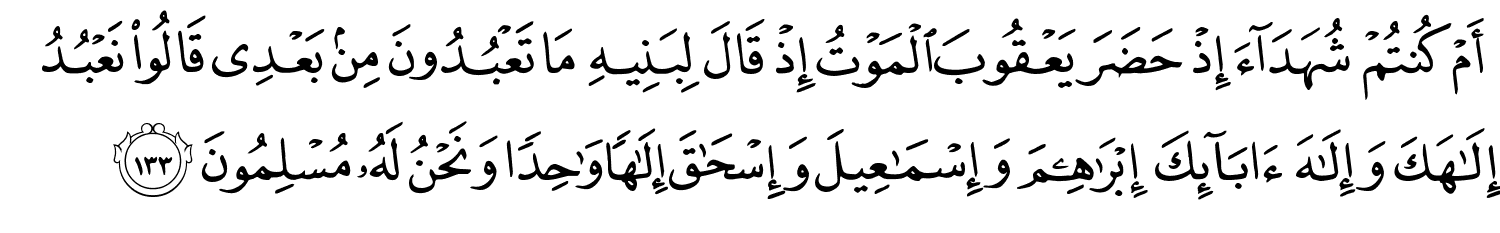 أَمْ كُنتُمْ شُهَدَآءَ إِذْ حَضَرَ يَعْقُوبَ ٱلْمَوْتُ إِذْ قَالَ لِبَنِيهِ مَا تَعْبُدُونَ مِنۢ بَعْدِى قَالُوا۟ نَعْبُدُ
إِلَـٰهَكَ وَإِلَـٰهَ ءَابَآئِكَ إِبْرَٰهِـۧمَ وَإِسْمَـٰعِيلَ وَإِسْحَـٰقَ إِلَـٰهًا وَٰحِدًا وَنَحْنُ لَهُۥ مُسْلِمُونَ ١٣٣